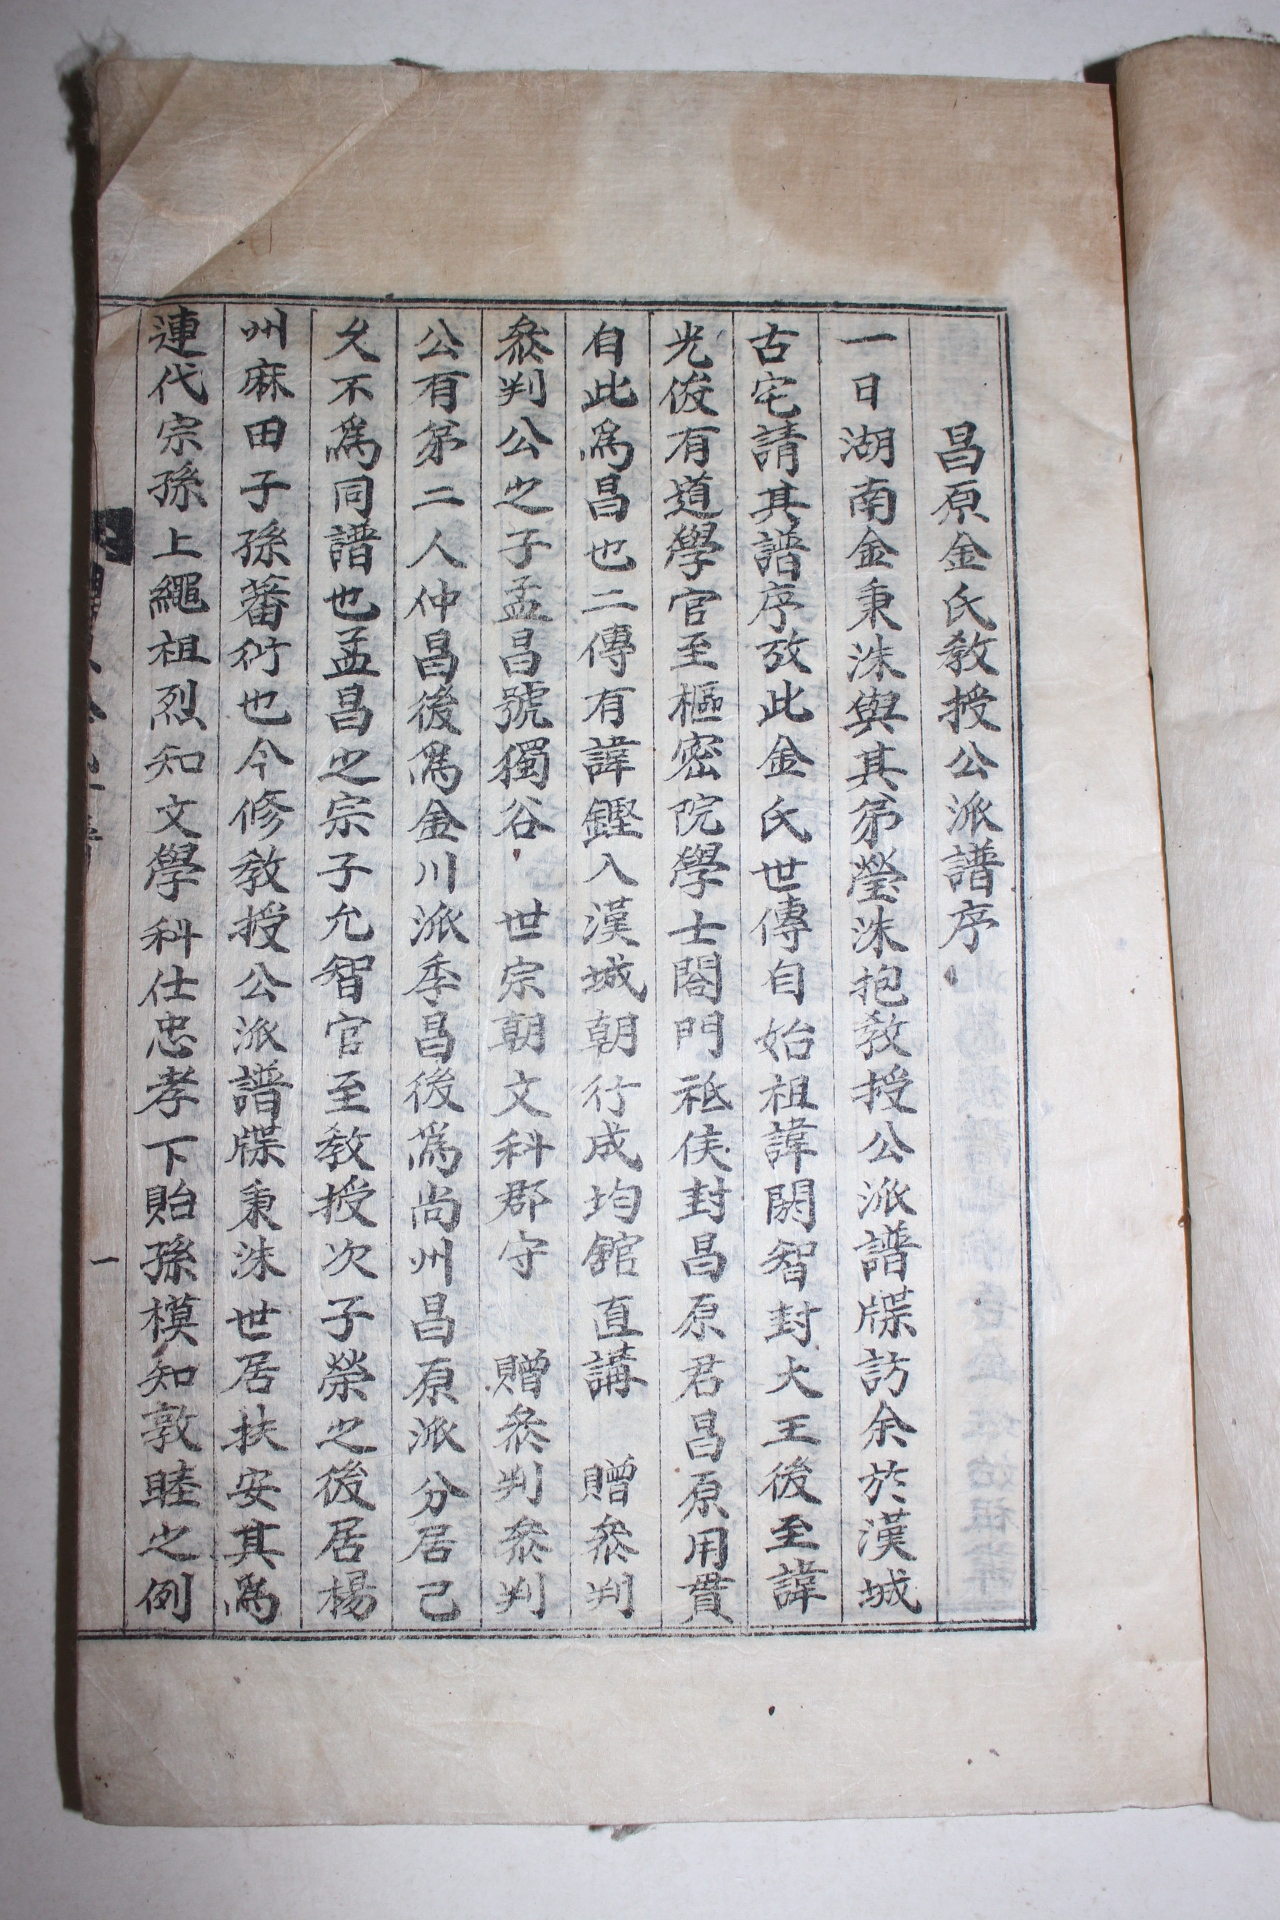 昌原金氏敎授公派譜序
一日湖南金秉洙與其弟瑩洙抱敎授公派譜牒訪余於漢城
古宅請其譜序攷此金氏世傳自始祖諱閼智封大王後至諱
光俊有道學官至樞密院學士閤門祗侯封昌原君昌原用貫
自此爲昌也二傳有諱鏗入漢城朝行成均館直講 贈叅判
叅判公之子孟昌號獨谷 世宗朝文科郡守 贈叅判叅判
公有弟二人仲昌後爲金川派季昌後爲尙州昌原派分居已
久不爲同譜也孟昌之宗子允智官至敎授次子榮之後居楊
州麻田子孫蕃衍也今修敎授公派譜牒秉洙世居扶安其爲
連代宗孫上繩祖烈知文學科仕忠孝下貽孫模知敦睦之例
一